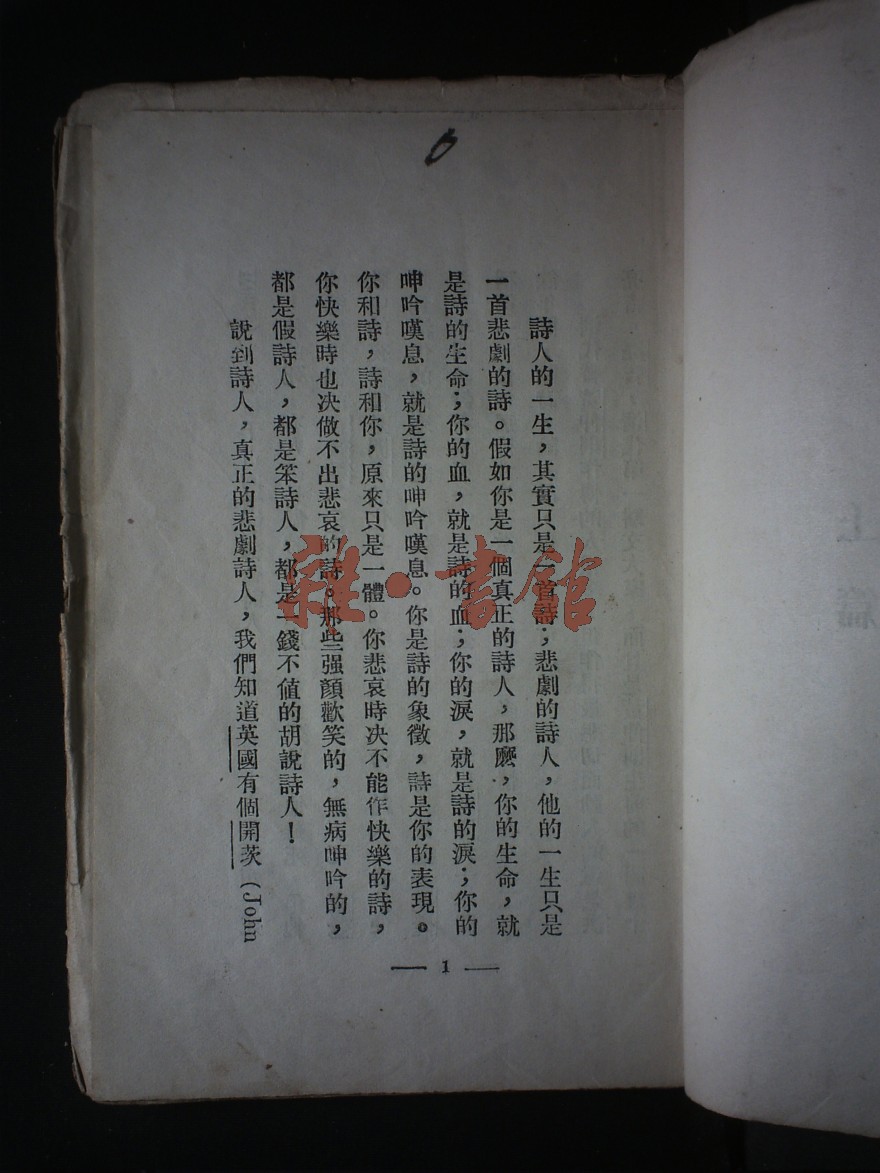 詩人的一生，其實只是一首詩；悲劇的詩人，他的一生只是
一首悲劇的詩。假如你是一個真正的詩人，那麽，你的生命，就
是詩的生命；你的血，就是詩的血；你的淚，就是詩的淚；你的
呻吟嘆息，就是詩的呻吟嘆息。你是詩的象徵，詩是你的表現。
你和詩，詩和你，原來只是一體。你悲哀時决不能作快樂的詩，
你快樂時也决做不出悲哀的詩。那些强顔歡笑的，無病呻吟的，
都是假詩人，都是笨詩人，都是一錢不値的胡說詩人！
說到詩人，真正的悲劇詩人，我們知道英國有個開茨 (John
— 1 —
雜·書館